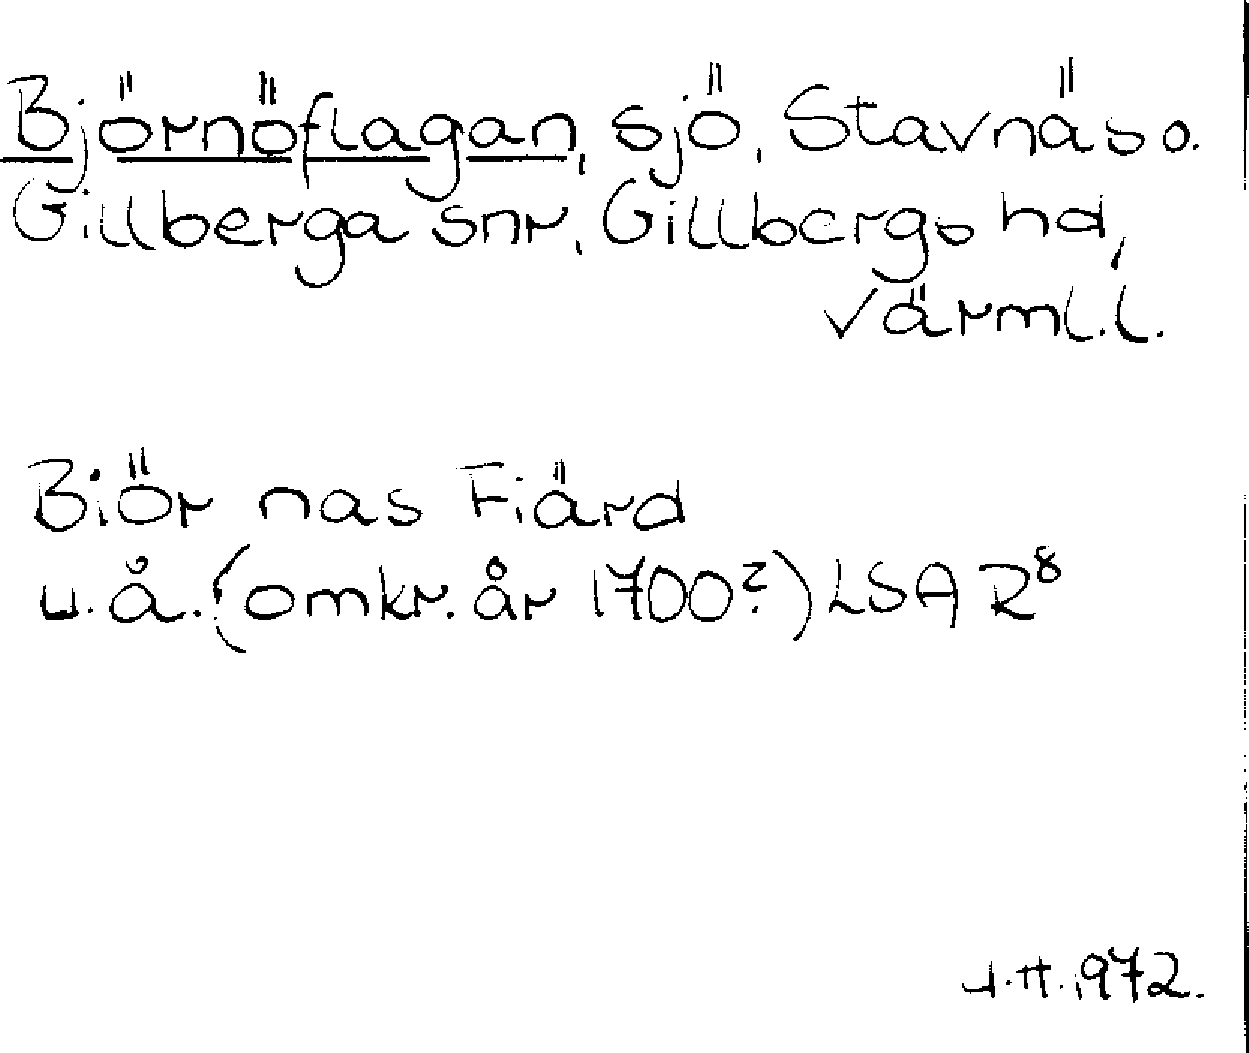 Björnöflagan, sjö, Stavnäs o.
Gillberga snr, Gillbergs hd,
Värml.l.
Biör nas Fiärd
u.å. (omkr. år 1700?) LSA R⁸
1972.